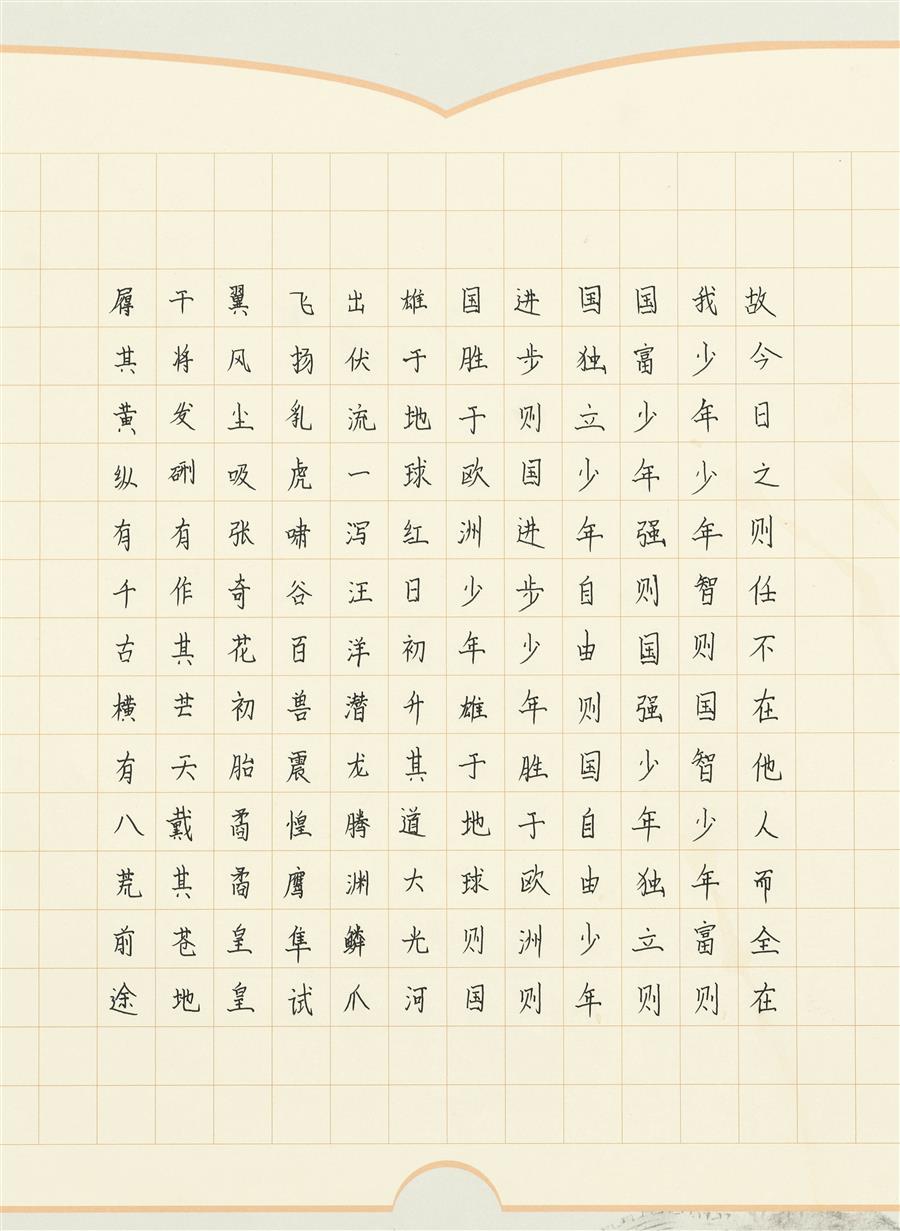 故今日之则任不在他人而全在
我少年少年智则国智少年富则
国富少年强则国强少年独立则
国独立少年自由则国自由少年
进步则国进步少年胜于欧洲则
国胜于欧洲少年雄于地球则国
雄于地球红日初升其道大光河
出伏流一泻汪洋潜龙腾渊鳞爪
飞扬乳虎啸谷百兽震惶鹰隼试
翼风尘吸张奇花初胎矞矞皇皇
干将发硎有作其芒天戴其苍地
履其黄纵有千古横有八荒前途